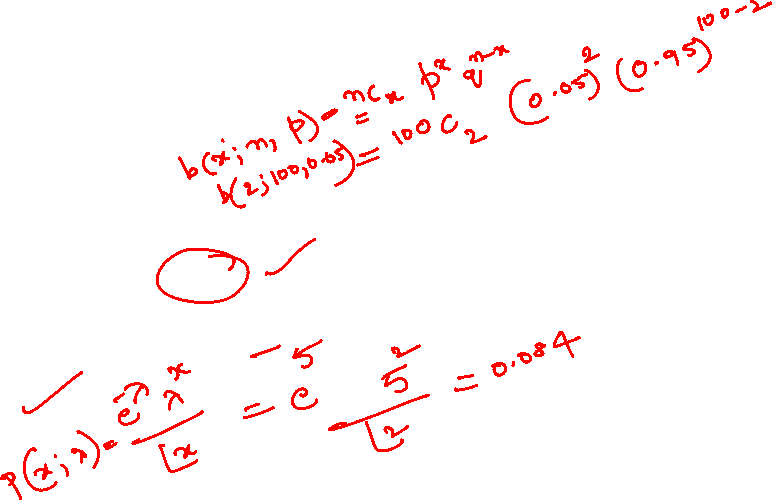 b(x; n, p) = nCₓ pˣ qⁿ⁻ˣ
b(2; 100, 0.05) = 100C₂ (0.05)² (0.95)¹⁰⁰⁻²
p(x; λ) = e^-λ λ^x / ⌊x = e^-5 5² / ⌊2 = 0.084